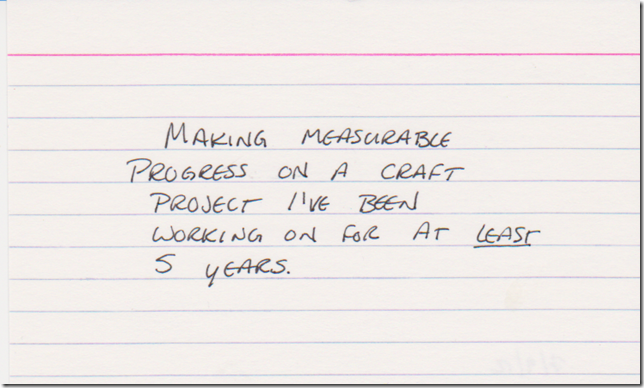 MAKING MEASURABLE
PROGRESS ON A CRAFT
PROJECT I'VE BEEN
WORKING ON FOR AT LEAST
5 YEARS.